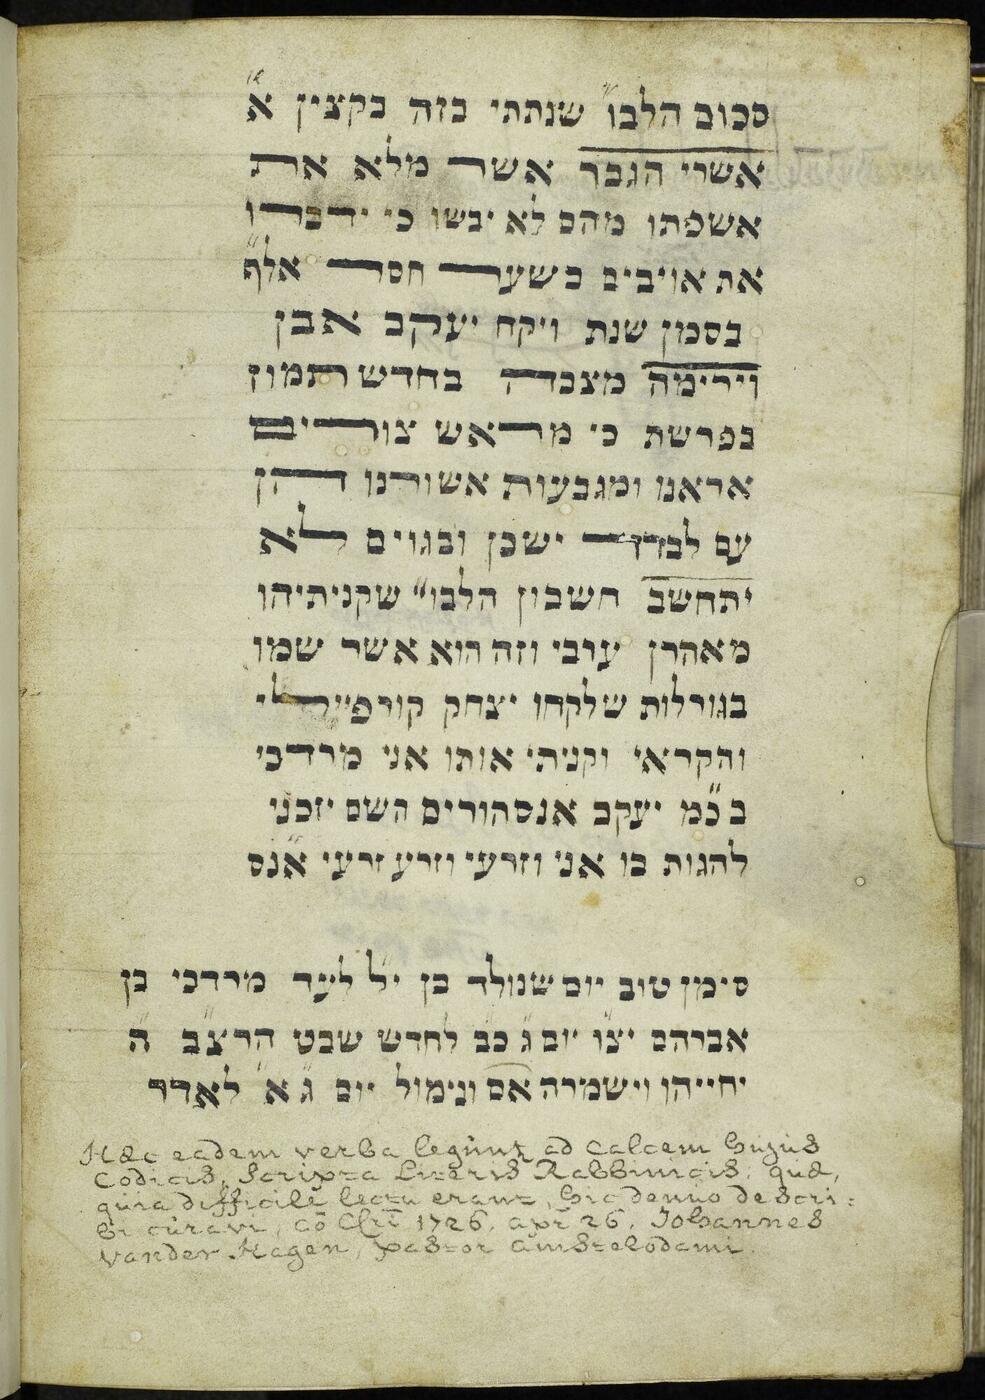 סכוב הלבו״ שנתתי בזה בקצין א״
אשרי הגבר אשר מלא את
אשפתו מהם לא יבשו כי ידברו
את אויבים בשער חסר אלף״
בסמן שנת ויקח יעקב אבן
וירימה מצבה בחדש תמוז
בפרשת כי מראש צורים
אראנו ומגבעות אשורנו הן
עם לבדד ישכן ובגוים לא
יתחשב חשבון הלבו״ שקניתיהו
מאהרן עיבי וזה הוא אשר שמו
בגורלות שלקחו יצחק
והקראי וקניתי אותו אני מרדכי
ב כ״מ יעקב אנסהורים השם יזכני
להגות בו אני וזרעי וזרע זרעי א״נס
סימן טוב יום שנולד בן י״ל לעד מרדכי בן
אברהם יצ״ו יום ג״ כ״ב לחדש שבט הרצ״ב ה״
יחייהו וישמרה אס ונימול יום ג״ א״ לאדר
Hæc eadem verba legunt ad calcem hujus
Codicis, scripta Literis Rabbinicis, quæ,
quia difficile lectu erant, hic denuo descri:
bi curavi, aõ Chrĩ 1726, apr 26, Johannes
vander Hagen, pastor amstelodami.